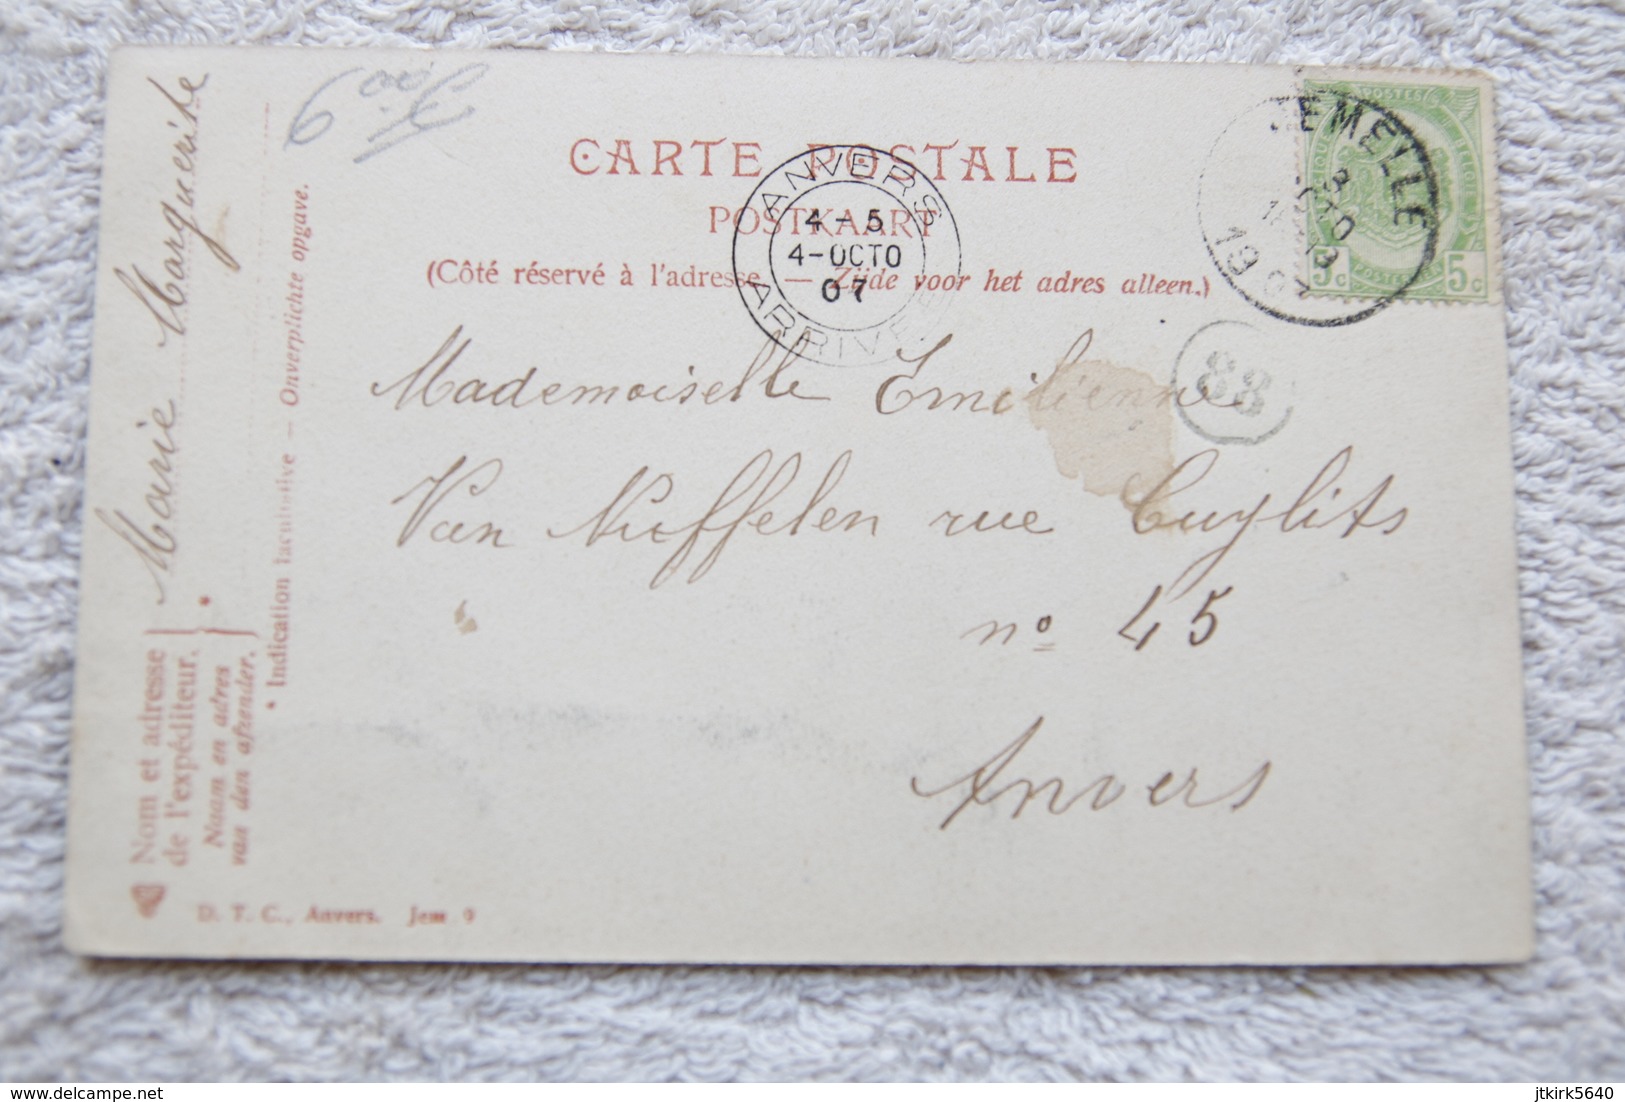 6 00 €
CARTE POSTALE
POSTKAART
(Côté réservé à l'adresse — Zijde voor het adres alleen.)
ANVERS
4-5
4-OCTO
07
ARRIVÉE
JEMELLE
19 07
POSTES
5c 5c
88
Mademoiselle Emilienne
Van Nuffelen rue Cuylits
no 45
Anvers
Marie Marguerite
Nom et adresse
de l'expéditeur.
Naam en adres
van den afzender.
*
* Indication facultative – Onverplichte opgave.
D. T. C., Anvers. Jem 9
delcampe.net
jtkirk5640